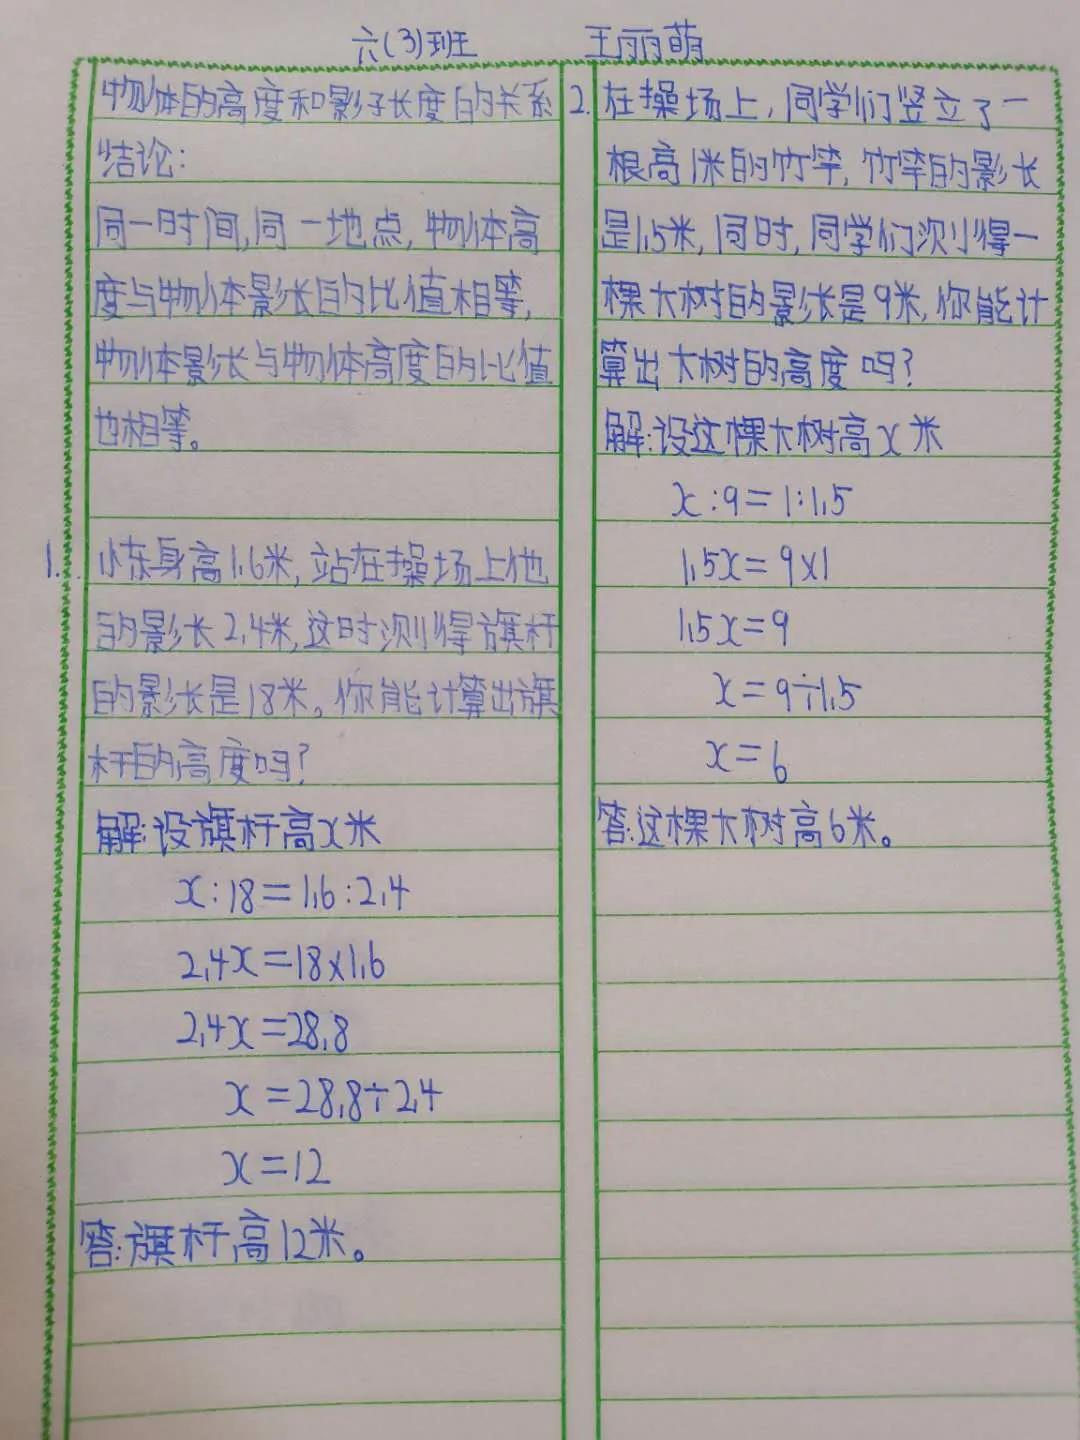 六(3)班 王丽萌
物体的高度和影子长度的关系
结论:
同一时间,同一地点,物体高
度与物体影长的比值相等,
物体影长与物体高度的比值
也相等。
1. 小东身高1.6米,站在操场上他
的影长2.4米,这时测得旗杆
的影长是18米。你能计算出旗
杆的高度吗?
解:设旗杆高x米
x:18=1.6:2.4
2.4x=18×1.6
2.4x=28.8
x=28.8÷2.4
x=12
答:旗杆高12米。
2. 在操场上,同学们竖立了一
根高1米的竹竿,竹竿的影长
是1.5米,同时,同学们测得一
棵大树的影长是9米,你能计
算出大树的高度吗?
解:设这棵大树高x米
x:9=1:1.5
1.5x=9×1
1.5x=9
x=9÷1.5
x=6
答:这棵大树高6米。